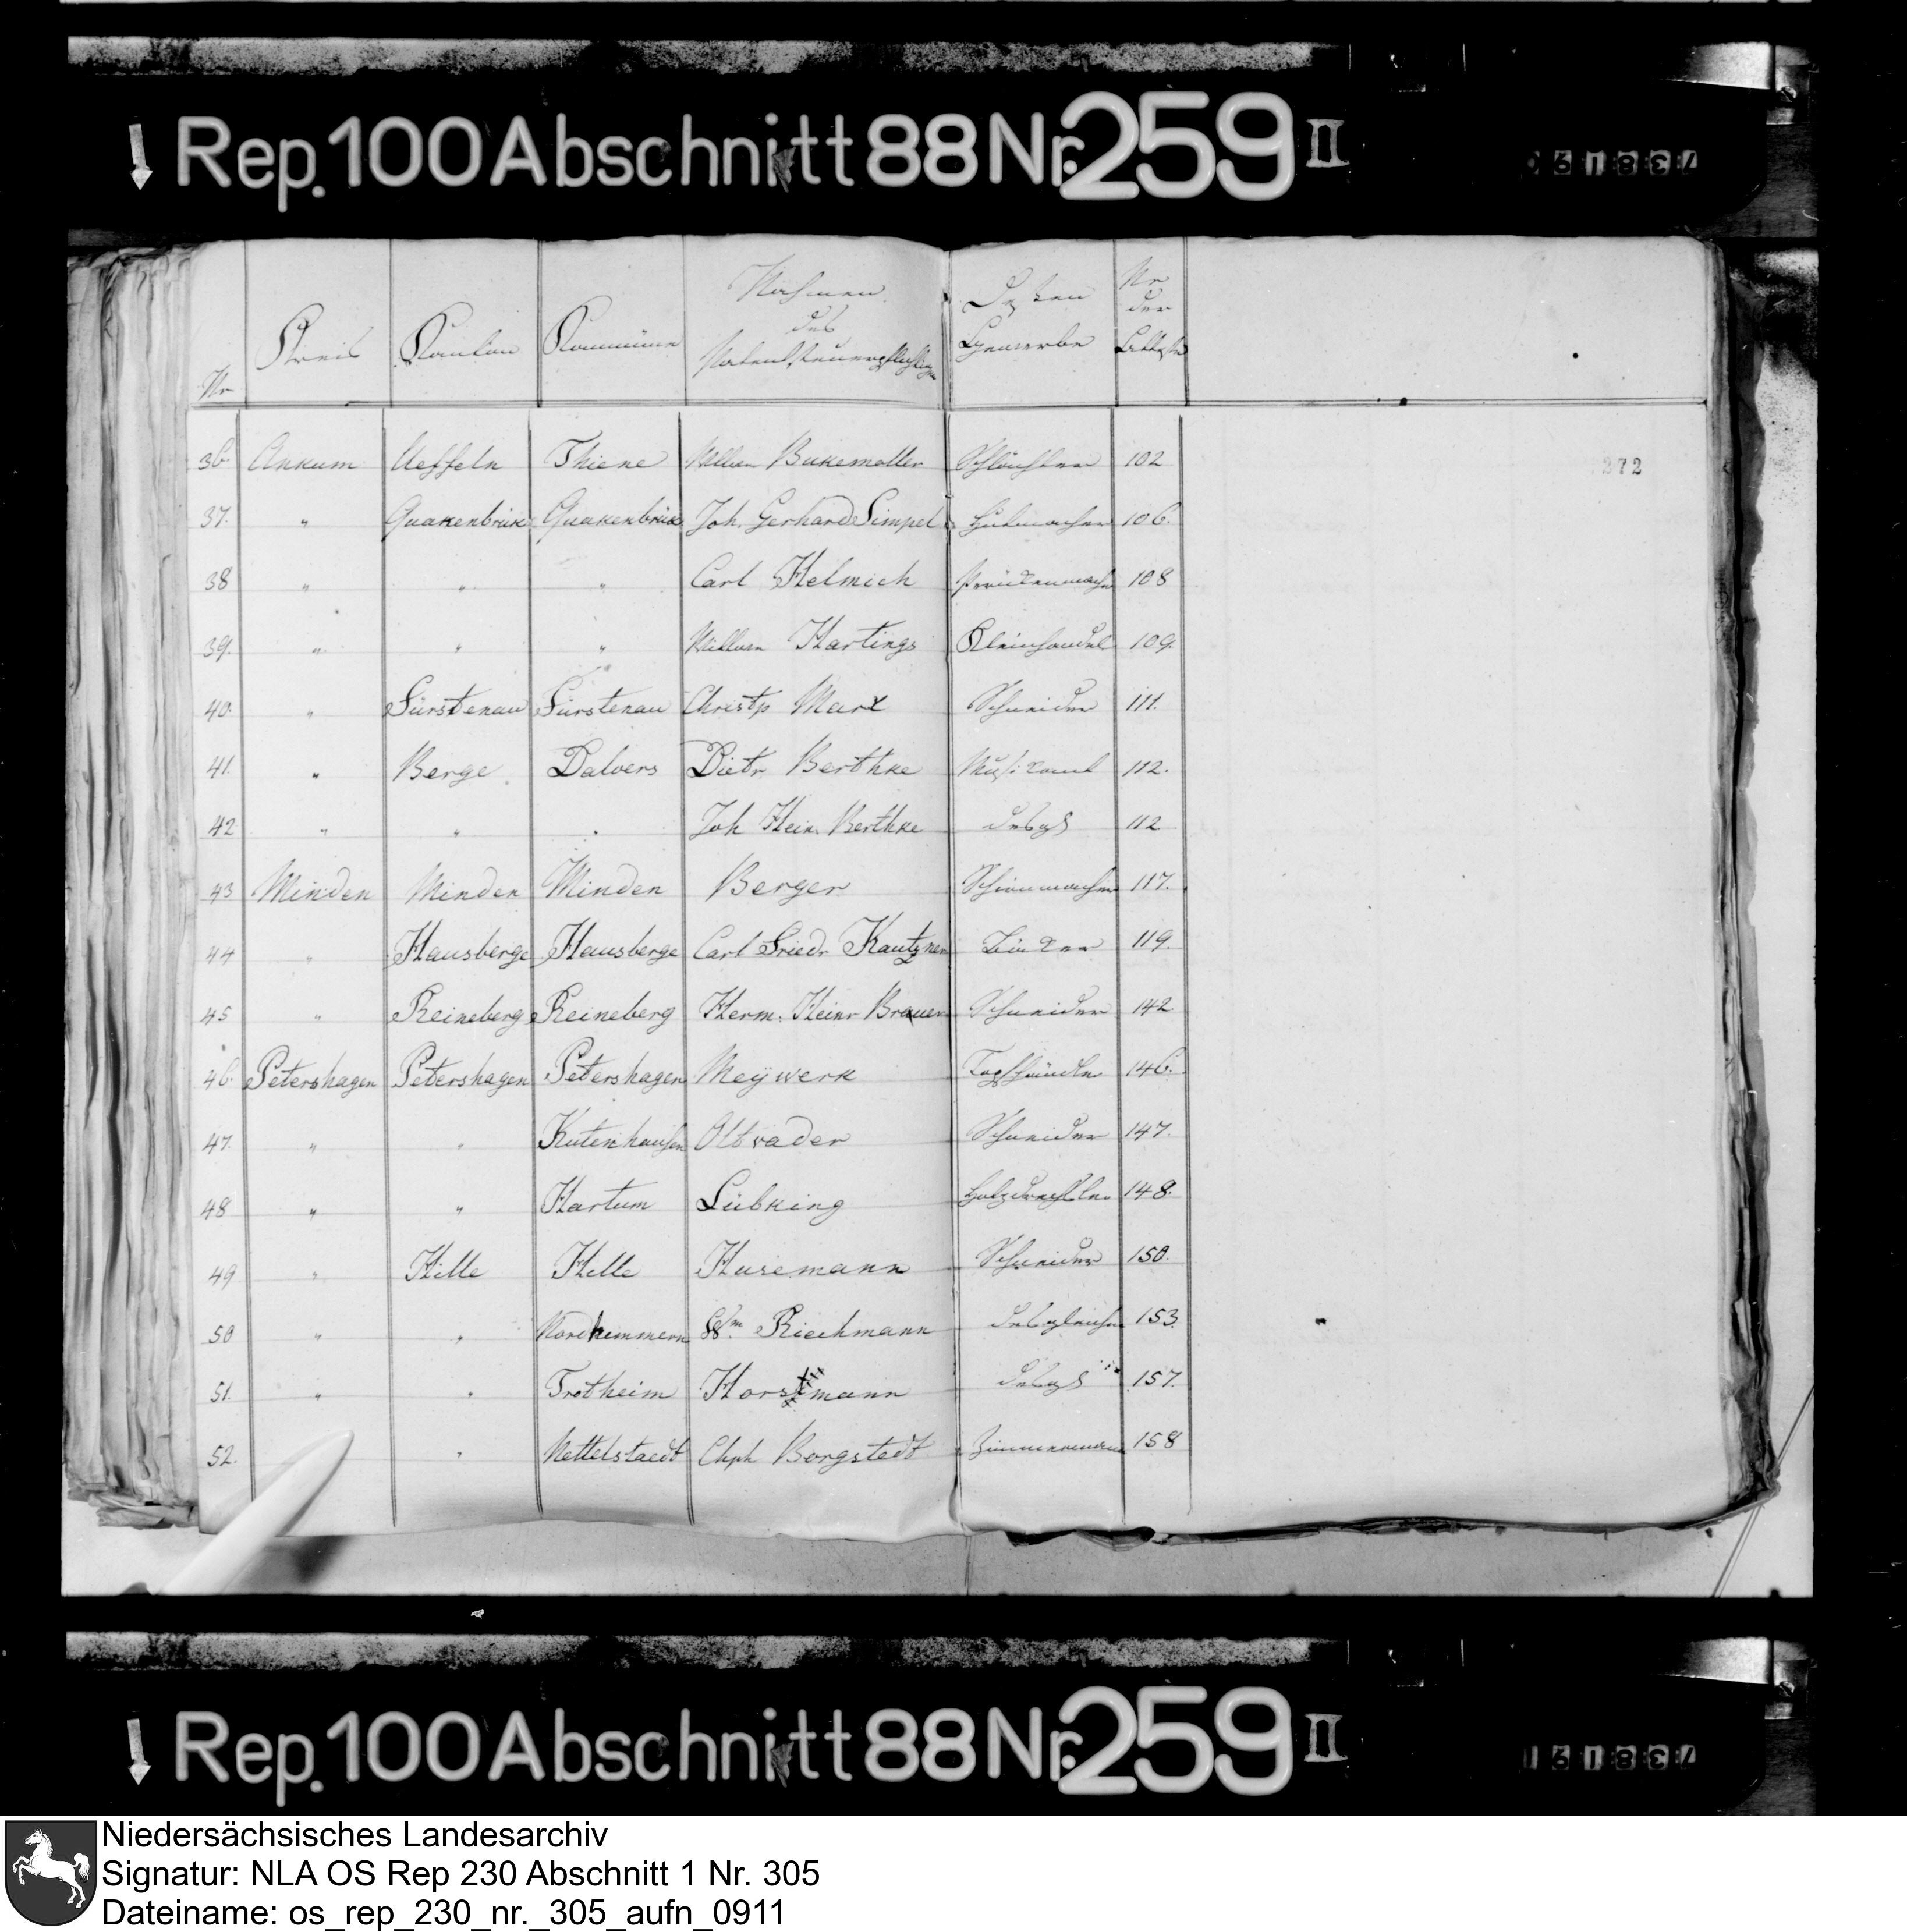 Rep. 100 Abschnitt 88 Nr. 259 II
738190
Nr Kreis Kanton Kommüne Nahmen des Patentsteuerpflichtigen Dessen Gewerbe Nr der
372
36 Ankum Ueffeln Thiene Wittwe Bukemoller Schlächter 102
37. " Quakenbrük Quakenbrük Joh. Gerhard Simpel Hutmacher 106.
38 " " " Carl Helmich Perückenmacher 108
39. " " " Wittwe Hartings Kleinhandel 109.
40. " Fürstenau Fürstenau Christp Marx Schneider 111.
41. " Berge Dalvers Dietr Berthke Musikant 112.
42 " " " Joh Hein. Berthke desgl 112
43 Minden Minden Minden Berger Schirmmacher 117.
44 " Hausberge Hausberge Carl Friedr Kautzner 119.
45 " Reineberg Reineberg Herm. Heinr Brauer Schneider 142
46. Petershagen Petershagen Petershagen Meÿwerk Topfhändler 146.
47. " " Kutenhausen Oltvader Schneider 147.
48 " " Hartum Lübking Holzdrechsler 148.
49 " Hille Hille Husemann Schneider 150.
50 " " Nordhemmern Wm Riechmann desgleichen 153.
51. " " Frotheim Horstmann desgl 157.
52. " Nettelstaedt Chph Borgstedt Zimmermann 158
Rep. 100 Abschnitt 88 Nr. 259 II
738191
Niedersächsisches Landesarchiv
Signatur: NLA OS Rep 230 Abschnitt 1 Nr. 305
Dateiname: os_rep_230_nr._305_aufn_0911